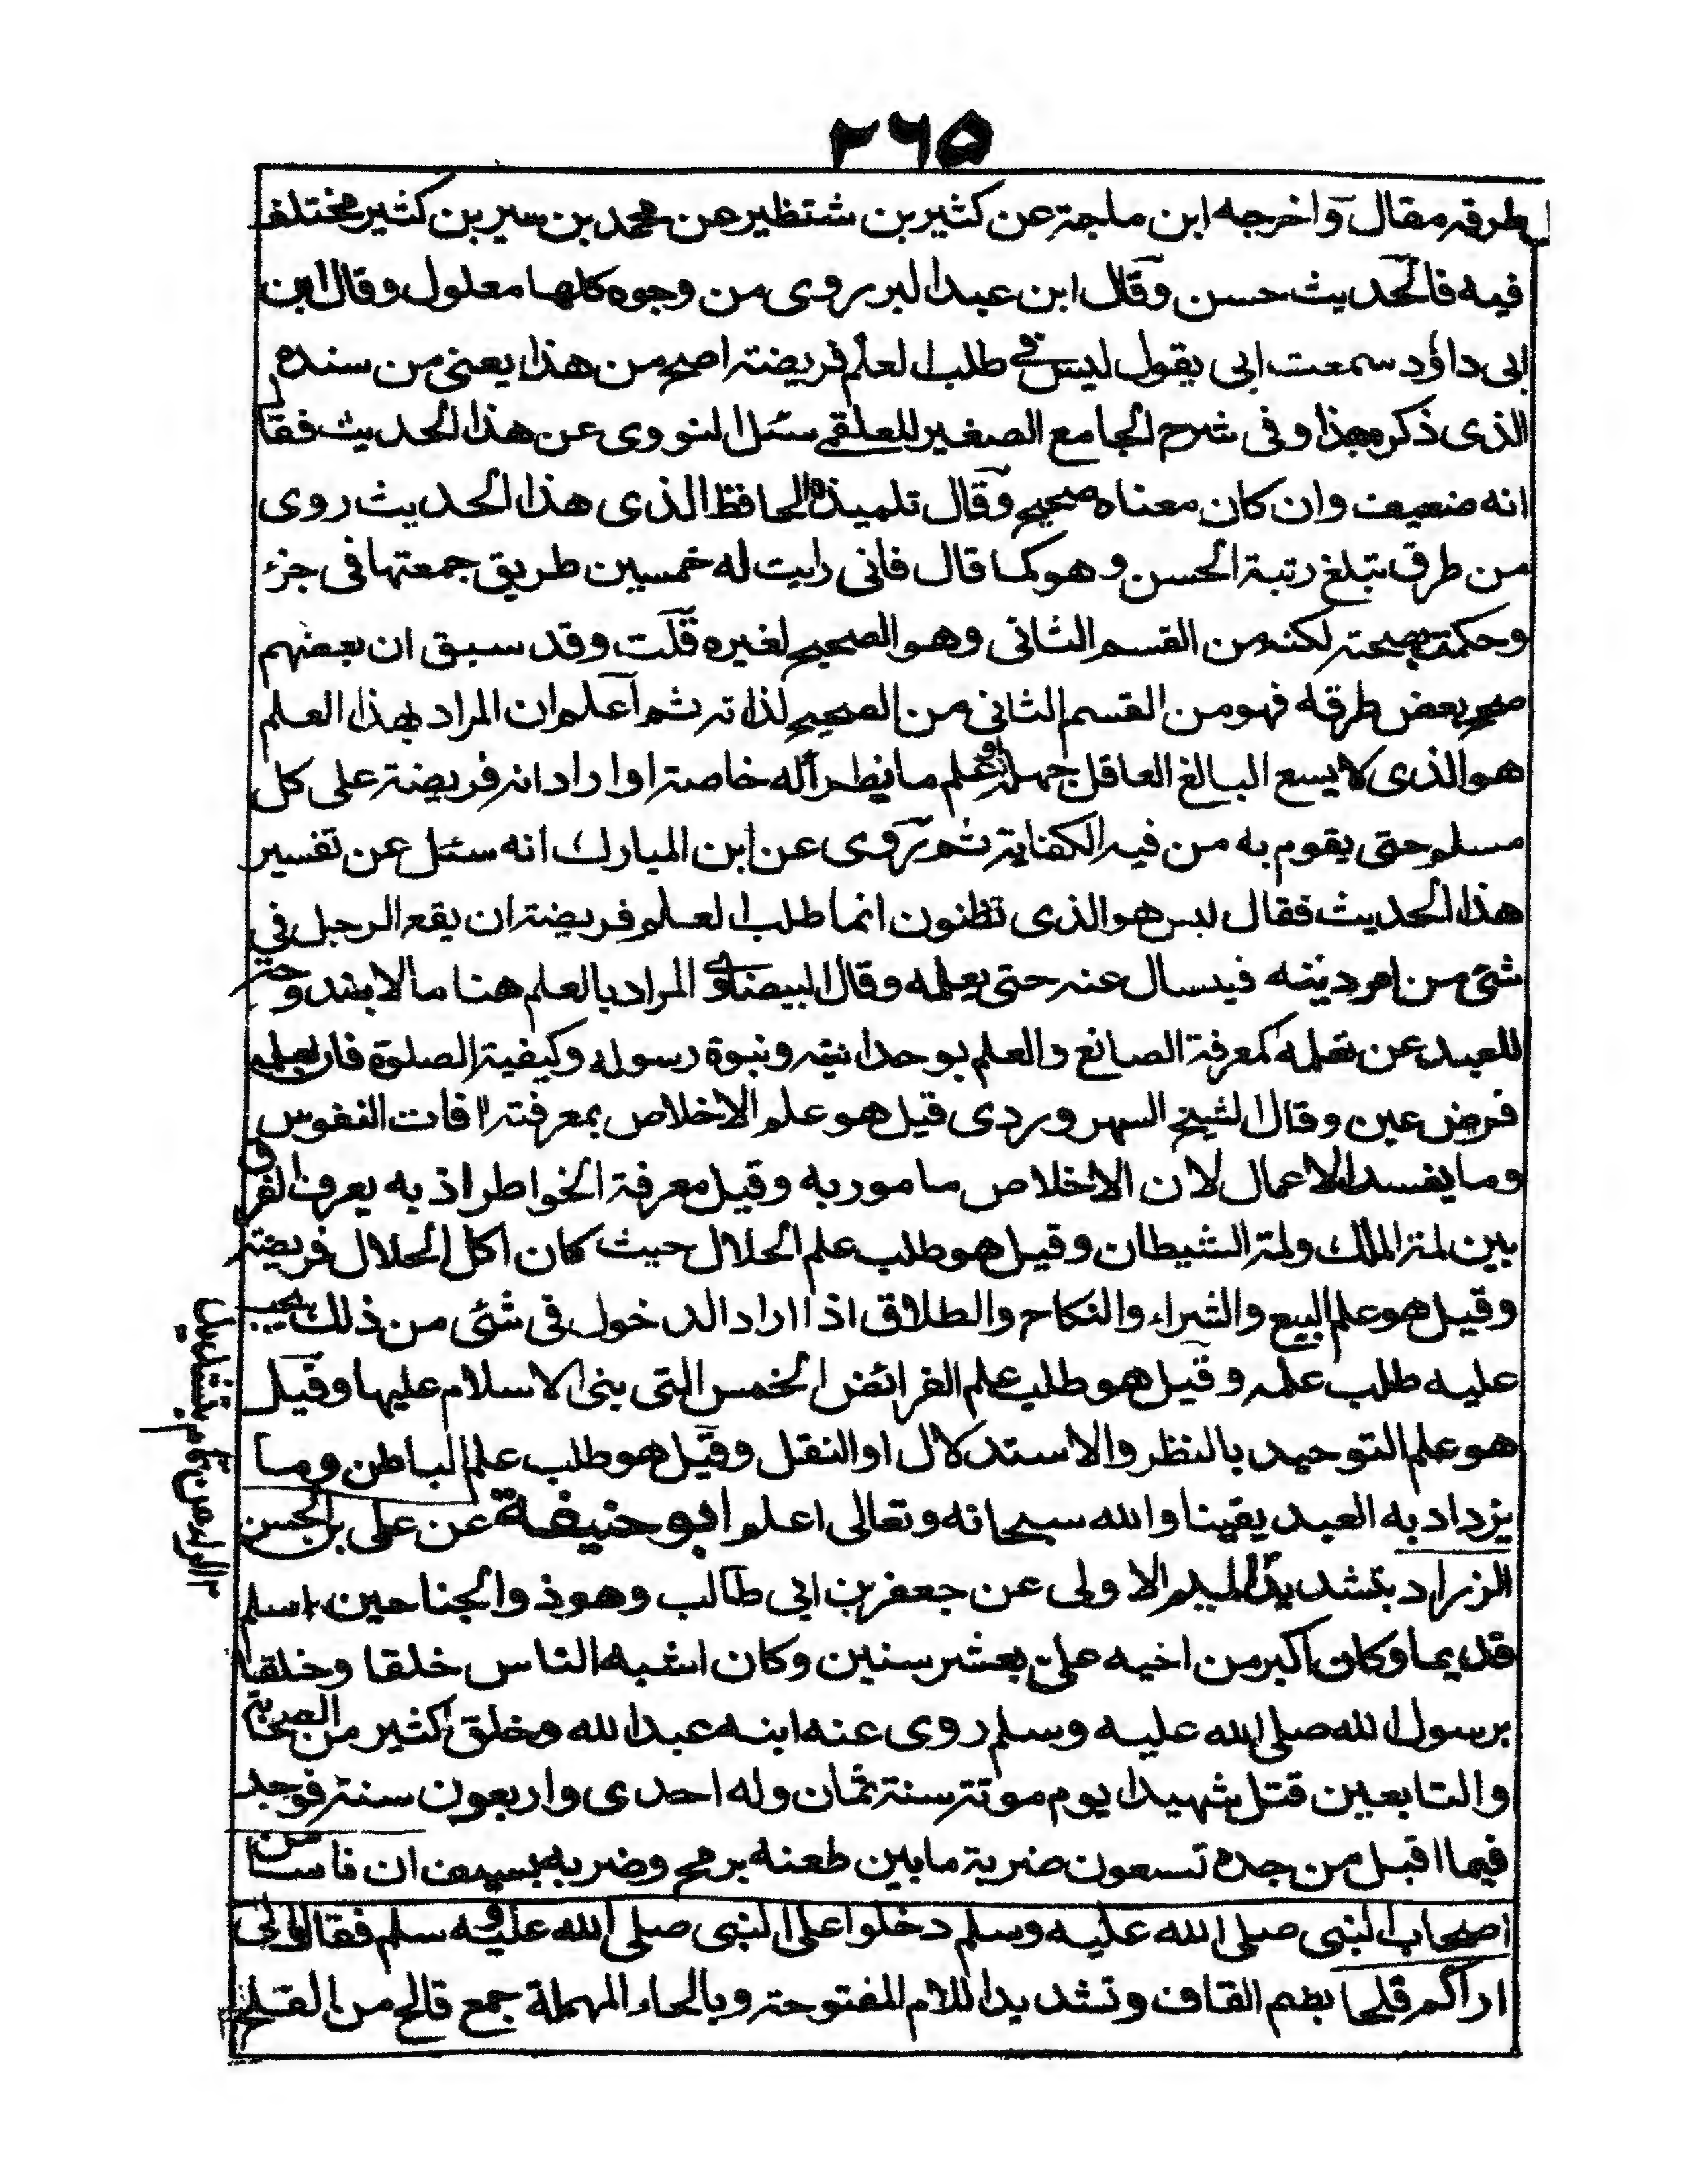 ٢٦٥
طرقه مقال واخرجه ابن ماجة عن كثير بن شنظير عن محمد بن سيرين كثير مختلف
فيه فالحديث حسن وقال ابن عبدالبر روى من وجوه كلها معلول وقال ابن
ابى داؤد سمعت ابى يقول ليس فى طلب العلم فريضة اصح من هذا يعنى من سنده
الذى ذكره هذا وفى شرح الجامع الصغير للعلقمى سئل النووى عن هذا الحديث فقال
انه ضعيف وان كان معناه صحيح وقال تلميذه الحافظ الذى هذا الحديث روى
من طرق تبلغ رتبة الحسن وهو كما قال فانى رايت له خمسين طريق جمعتها فى جزء
وحكمت بصحته لكنه من القسم الثانى وهو الصحيح لغيره قلت وقد سبق ان بعضهم
صحح بعض طرقه فهو من القسم الثانى من الصحيح لذاته ثم اعلم ان المراد بهذا العلم
هو الذى لا يسع البالغ العاقل جهله او علم ما يطرأ له خاصة او اراد انه فريضة على كل
مسلم حتى يقوم به من فيه الكفاية ثم روى عن ابن المبارك انه سئل عن تفسير
هذا الحديث فقال ليس هو الذى تظنون انما طلب العلم فريضة ان يقع الرجل فى
شئ من امر دينه فيسال عنه حتى يعلمه وقال البيضاوى المراد بالعلم هنا ما لا مندوحة
للعبد عن تعلمه كمعرفة الصانع والعلم بوحدانيته ونبوة رسوله وكيفية الصلوة فان تعلمه
فرض عين وقال الشيخ السهروردى قيل هو علم الاخلاص بمعرفة افات النفوس
وما يفسد الاعمال لان الاخلاص مامور به وقيل معرفة الخواطر اذ به يعرف الفرق
بين لمة الملك ولمة الشيطان وقيل هو طلب علم الحلال حيث كان اكل الحلال فريضة
وقيل هو علم البيع والشراء والنكاح والطلاق اذا اراد الدخول فى شئ من ذلك يجب
عليه طلب علمه وقيل هو طلب علم الفرائض الخمس التى بنى الاسلام عليها وقيل
هو علم التوحيد بالنظر والاستدلال او النقل وقيل هو طلب علم الباطن وما
يزداد به العبد يقينا والله سبحانه وتعالى اعلم ابو حنيفة عن على بن الحسن
الزراد بتشديد الميم الاولى عن جعفر بن ابى طالب وهو ذو الجناحين اسلم
قديما وكان اكبر من اخيه على بعشر سنين وكان اشبه الناس خلقا وخلقا
برسول الله صلى الله عليه وسلم روى عنه ابنه عبدالله وخلق كثير من الصحابة
والتابعين قتل شهيدا يوم موتة سنة ثمان وله احدى واربعون سنة فوجد
فيما اقبل من جده تسعون ضربة ما بين طعنه برمح وضربه بسيف ان ناسا من
اصحاب النبى صلى الله عليه وسلم دخلوا على النبى صلى الله عليه وسلم فقال مالى
اراكم قلحا بضم القاف وتشديد اللام المفتوحة وبالحاء المهملة جمع قالح من القلح